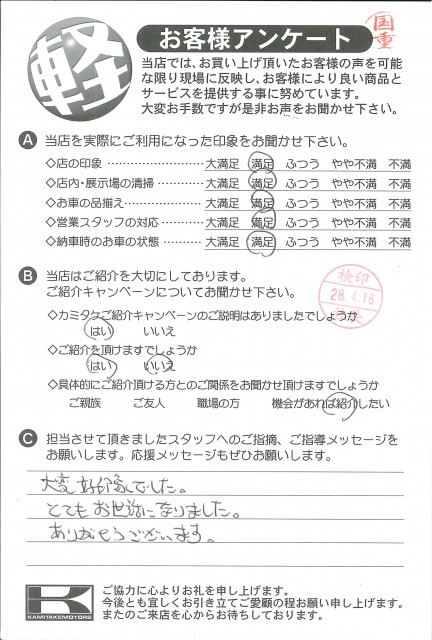 軽
お客様アンケート
国重
当店では、お買い上げ頂いたお客様の声を可能
な限り現場に反映し、お客様により良い商品と
サービスを提供する事に努めています。
大変お手数ですが是非お声をお聞かせ下さい。
A 当店を実際にご利用になった印象をお聞かせ下さい。
◇店の印象 ………………… 大満足 満足 ふつう やや不満 不満
◇店内・展示場の清掃………… 大満足 満足 ふつう やや不満 不満
◇お車の品揃え……………… 大満足 満足 ふつう やや不満 不満
◇営業スタッフの対応………… 大満足 満足 ふつう やや不満 不満
◇納車時のお車の状態………… 大満足 満足 ふつう やや不満 不満
B 当店はご紹介を大切にしております。
ご紹介キャンペーンについてお聞かせ下さい。
検印
28.4.16
◇カミタケご紹介キャンペーンのご説明はありましたでしょうか
はい いいえ
◇ご紹介を頂けますでしょうか
はい いいえ
◇具体的にご紹介頂ける方とのご関係をお聞かせ頂けますでしょうか
ご親族 ご友人 職場の方 機会があれば紹介したい
C 担当させて頂きましたスタッフへのご指摘、ご指導メッセージを
お願いします。応援メッセージもぜひお願いします。
大変好印象でした。
とてもお世話になりました。
ありがとうございます。
K
KAMITAKEMOTORS
ご協力に心よりお礼を申し上げます。
今後とも宜しくお引き立てご愛顧の程お願い申し上げます。
またのご来店を心からお待ちしております。